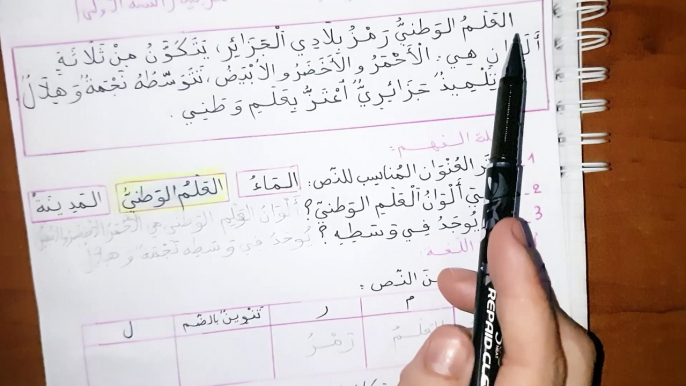 السنة الأولى
العَلَمُ الوَطَنِيُّ رَمْزُ بِلَادِي الْجَزَائِر، يَتَكَوَّنُ مِنْ ثَلَاثَةِ
هِيَ: الْأَحْمَرُ وَالأَخْضَرُ وَالأَبْيَضُ، تَتَوَسَّطُهُ نَجْمَةٌ وَهِلَالٌ
تِلْمِيذٌ جَزَائِرِيٌّ أَعْتَزُّ بِعَلَمِ وَطَنِي.
الفهم:
1- العُنْوَانَ المُنَاسِبَ لِلنَّصِ: المَاءُ العَلَمُ الوَطَنِيُّ المَدِينَةُ
2- أَلْوَانُ الْعَلَمِ الوَطَنِيِّ؟ أَلْوَانُ العَلَمِ الوَطَنِي هِيَ الأَحْمَرُ
3 يُوجَدُ فِي وَسَطِهِ؟ يُوجَدُ فِي وَسَطِهِ نَجْمَةٌ وَهِلَالٌ
اللغة:
النَّص:
م ر تنوين بالضم ل
العَلَمُ رَمْزُ
REPAID.CLE